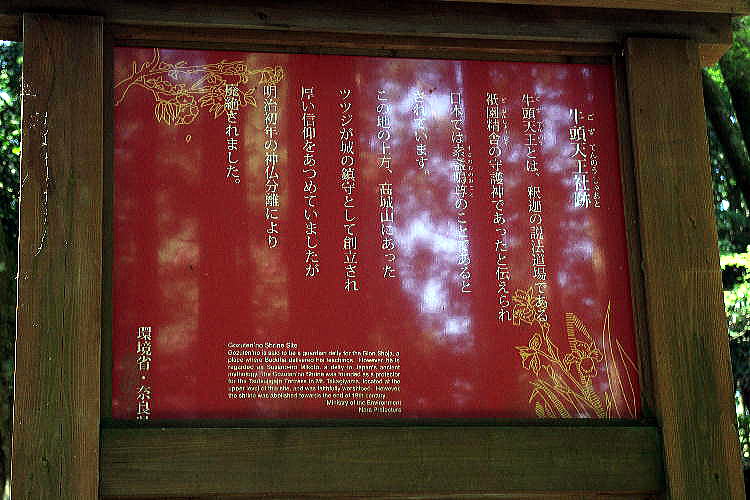 牛頭天王社跡
牛頭天王とは、釈迦の説法道場である
祇園精舎の守護神であったと伝えられ
日本では素盞嗚尊のことであると
されています。
この地の上方、高城山にあった
ツツジが城の鎮守として創立され
厚い信仰をあつめていましたが
明治初年の神仏分離により
廃絶されました。
環境省・奈良県
Gozuten'no Shrine Site
Gozuten'no is said to be a guardian deity for the Gion Shoja, a
place where Buddha delivered his teachings. However, he is
regarded as Susano-no Mikoto, a deity in Japan's ancient
mythology. The Gozuten'no Shrine was founded as a protector
for the Tsutsujigajo Fortress in Mt. Takagiyama, located at the
upper level of this site, and was faithfully worshiped. However,
the shrine was abolished towards the end of 19th century.
Ministry of the Environment
Nara Prefecture